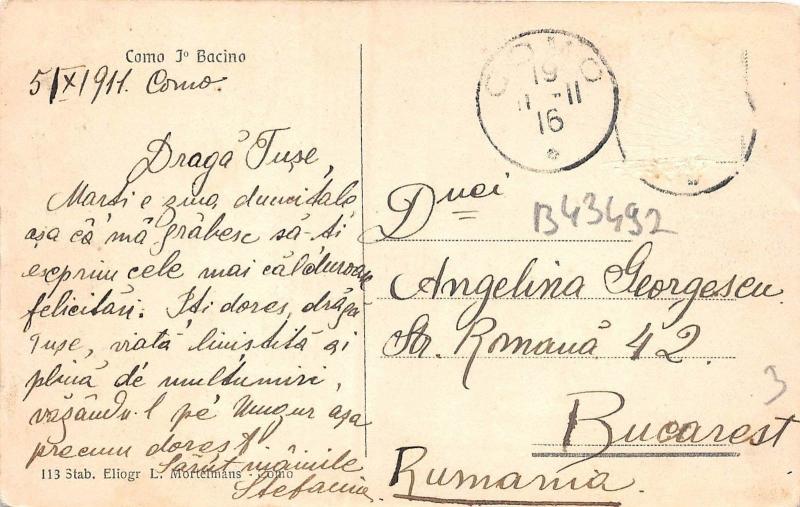 Como Iº Bacino
5/IX/911. Como.
Dragă Tușe,
Marți e ziua dumitale
așa că mă grăbesc să-ți
exprim cele mai călduroase
felicitări. Îți doresc, dragă
Tușe, viață liniștită și
plină de mulțumiri,
văzându-l pe Mugur așa
precum dorești
Sărut mâinile
Stefania
113 Stab. Eliogr L. Mortelmans - Como
COMO
19
11 - 11
16
Dnei
B43492
Angelina Georgescu
Str. Romană 42.
3
Bucarest
Rumania.